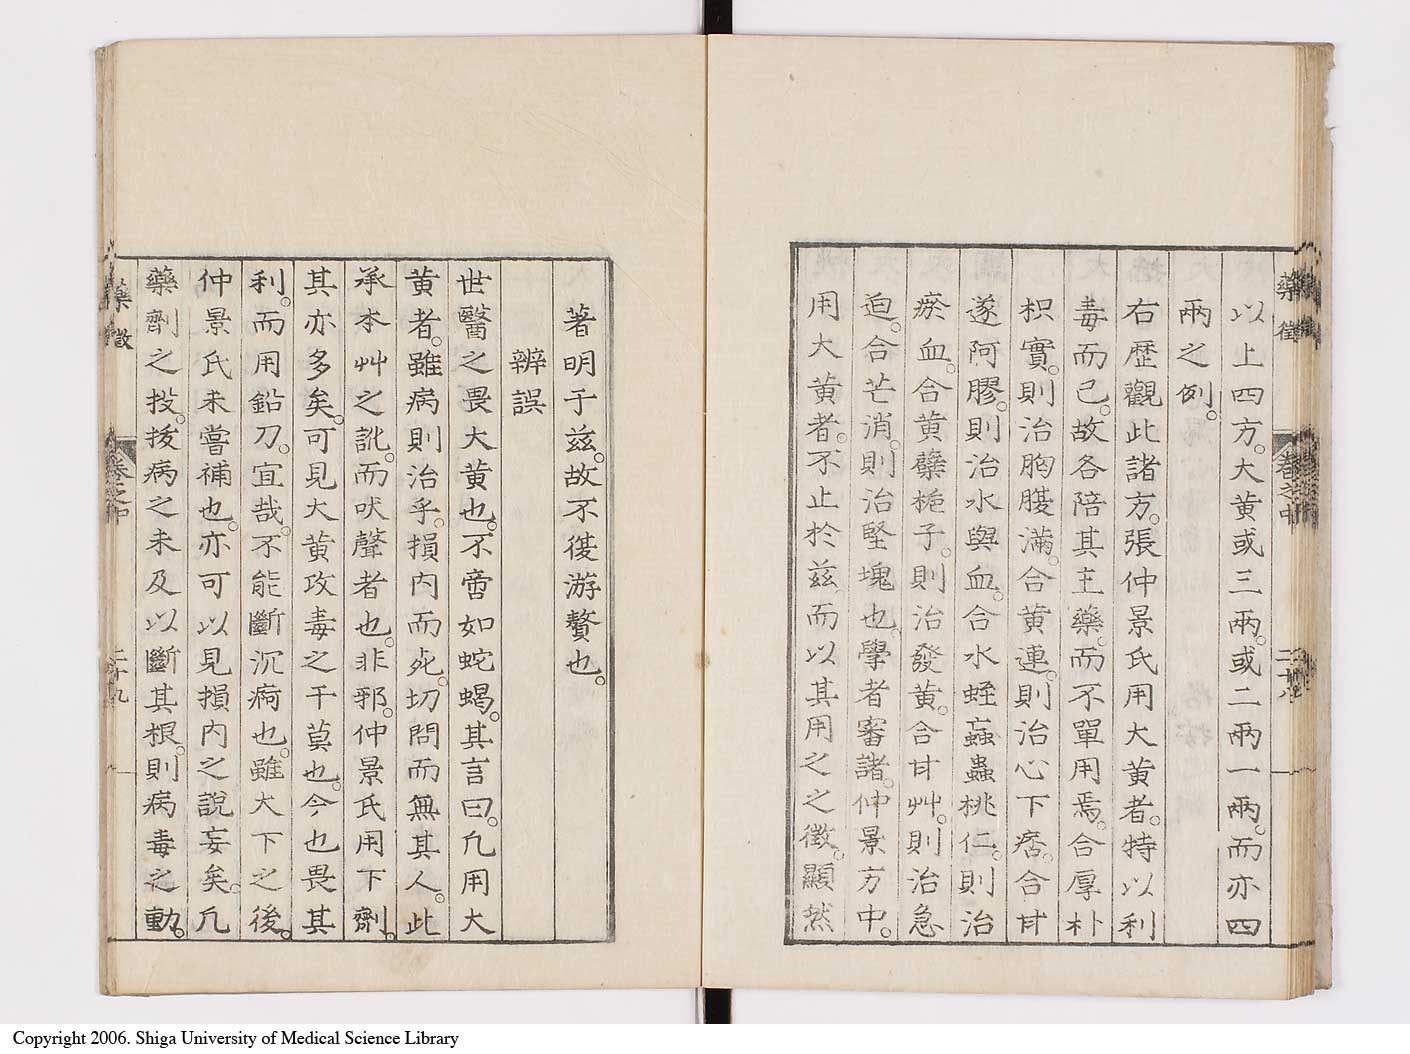 藥徵 卷之中 二十八
以上四方。大黄或三兩。或二兩一兩。而亦四
兩之例。
右歷觀此諸方。張仲景氏用大黄者。特以利
毒而已。故各陪其主藥。而不單用焉。合厚朴
枳實。則治胸腹滿。合黄連。則治心下痞。合甘
遂阿膠。則治水與血。合水蛭䖟蟲桃仁。則治
瘀血。合黄蘗梔子。則治發黄。合甘艸。則治急
迫。合芒消。則治堅塊也。學者審諸。仲景方中。
用大黄者。不止於兹。而以其用之之徵。顯然
著明于兹。故不復游贅也。
辨誤
世醫之畏大黄也。不啻如蛇蝎。其言曰。凢用大
黄者。雖病則治乎。損内而死。切問而無其人。此
承本艸之訛。而吠聲者也。非邪。仲景氏用下劑。
其亦多矣。可見大黄攻毒之干莫也。今也畏其
利。而用鉛刀。宜哉。不能斷沉痾也。雖大下之後。
仲景氏未嘗補也。亦可以見損内之說妄矣。凢
藥劑之投。拔病之未及以斷其根。則病毒之動。
藥徵 卷之中 二十九
Copyright 2006. Shiga University of Medical Science Library